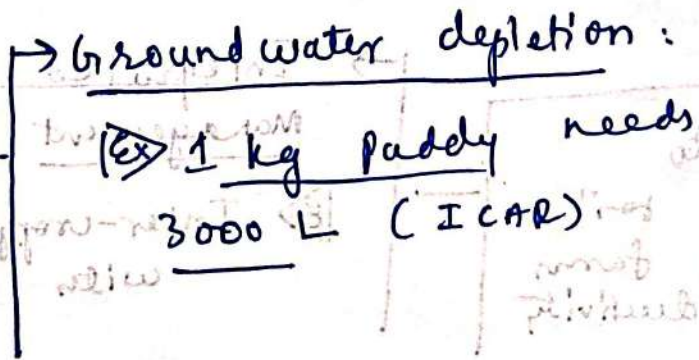 → Groundwater depletion :
Ex> 1 kg paddy needs
3000 L (ICAR)